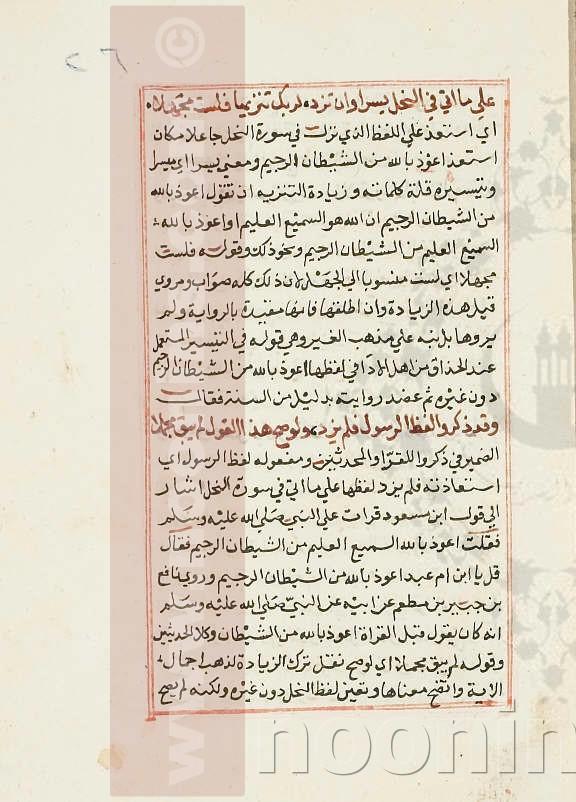 ٢٦
علي ما اتي في النخل يسرا وان تزد لربك تنزيها فلست مجهلا
اي استعذ علي اللفظ الذي نزل في سورة النحل جاعلا مكان
استعذ اعوذ بالله من الشيطان الرجيم ومعني يسرا اي ميسرا
وتيسيره قلة كلماته وزيادة التنزيه ان تقول اعوذ بالله
من الشيطان الرجيم ان الله هو السميع العليم او اعوذ بالله
السميع العليم من الشيطان الرجيم ونحو ذلك وقوله فلست
مجهلا اي لست منسوبا الي الجهل لان ذلك كله صواب ومروي
قيل هذه الزيادة وان اطلقها فانها مقيدة بالرواية ولم
يروها بل نبه علي مذهب الغير وهي قوله في التيسير المستعمل
عند الحذاق من اهل الادا في لفظها اعوذ بالله من الشيطان الرجيم
دون غيره ثم عضد روايته بدليل من السنة فقال
وقد ذكروا لفظ الرسول فلم يزد ولو صح هذا القول لم يبق مجملا
الضمير في ذكروا للقرا والمحدثين ومفعوله لفظ الرسول اي
استعاذته فلم يزد لفظها علي ما اتي في سورة النحل اشار
الي قول ابن مسعود قرات علي النبي صلي الله عليه وسلم
فقلت اعوذ بالله السميع العليم من الشيطان الرجيم فقال
قل يا ابن ام عبد اعوذ بالله من الشيطان الرجيم وروي نافع
بن جبير بن مطعم عن ابيه عن النبي صلي الله عليه وسلم
انه كان يقول قبل القراة اعوذ بالله من الشيطان وكلا الحديثين
وقوله لم يبق مجملا اي لو صح نقل ترك الزيادة لذهب اجمال
الاية واتضح معناها وتعين لفظ النحل دون غيره ولكنه لم يصح
www.noorin
noonin